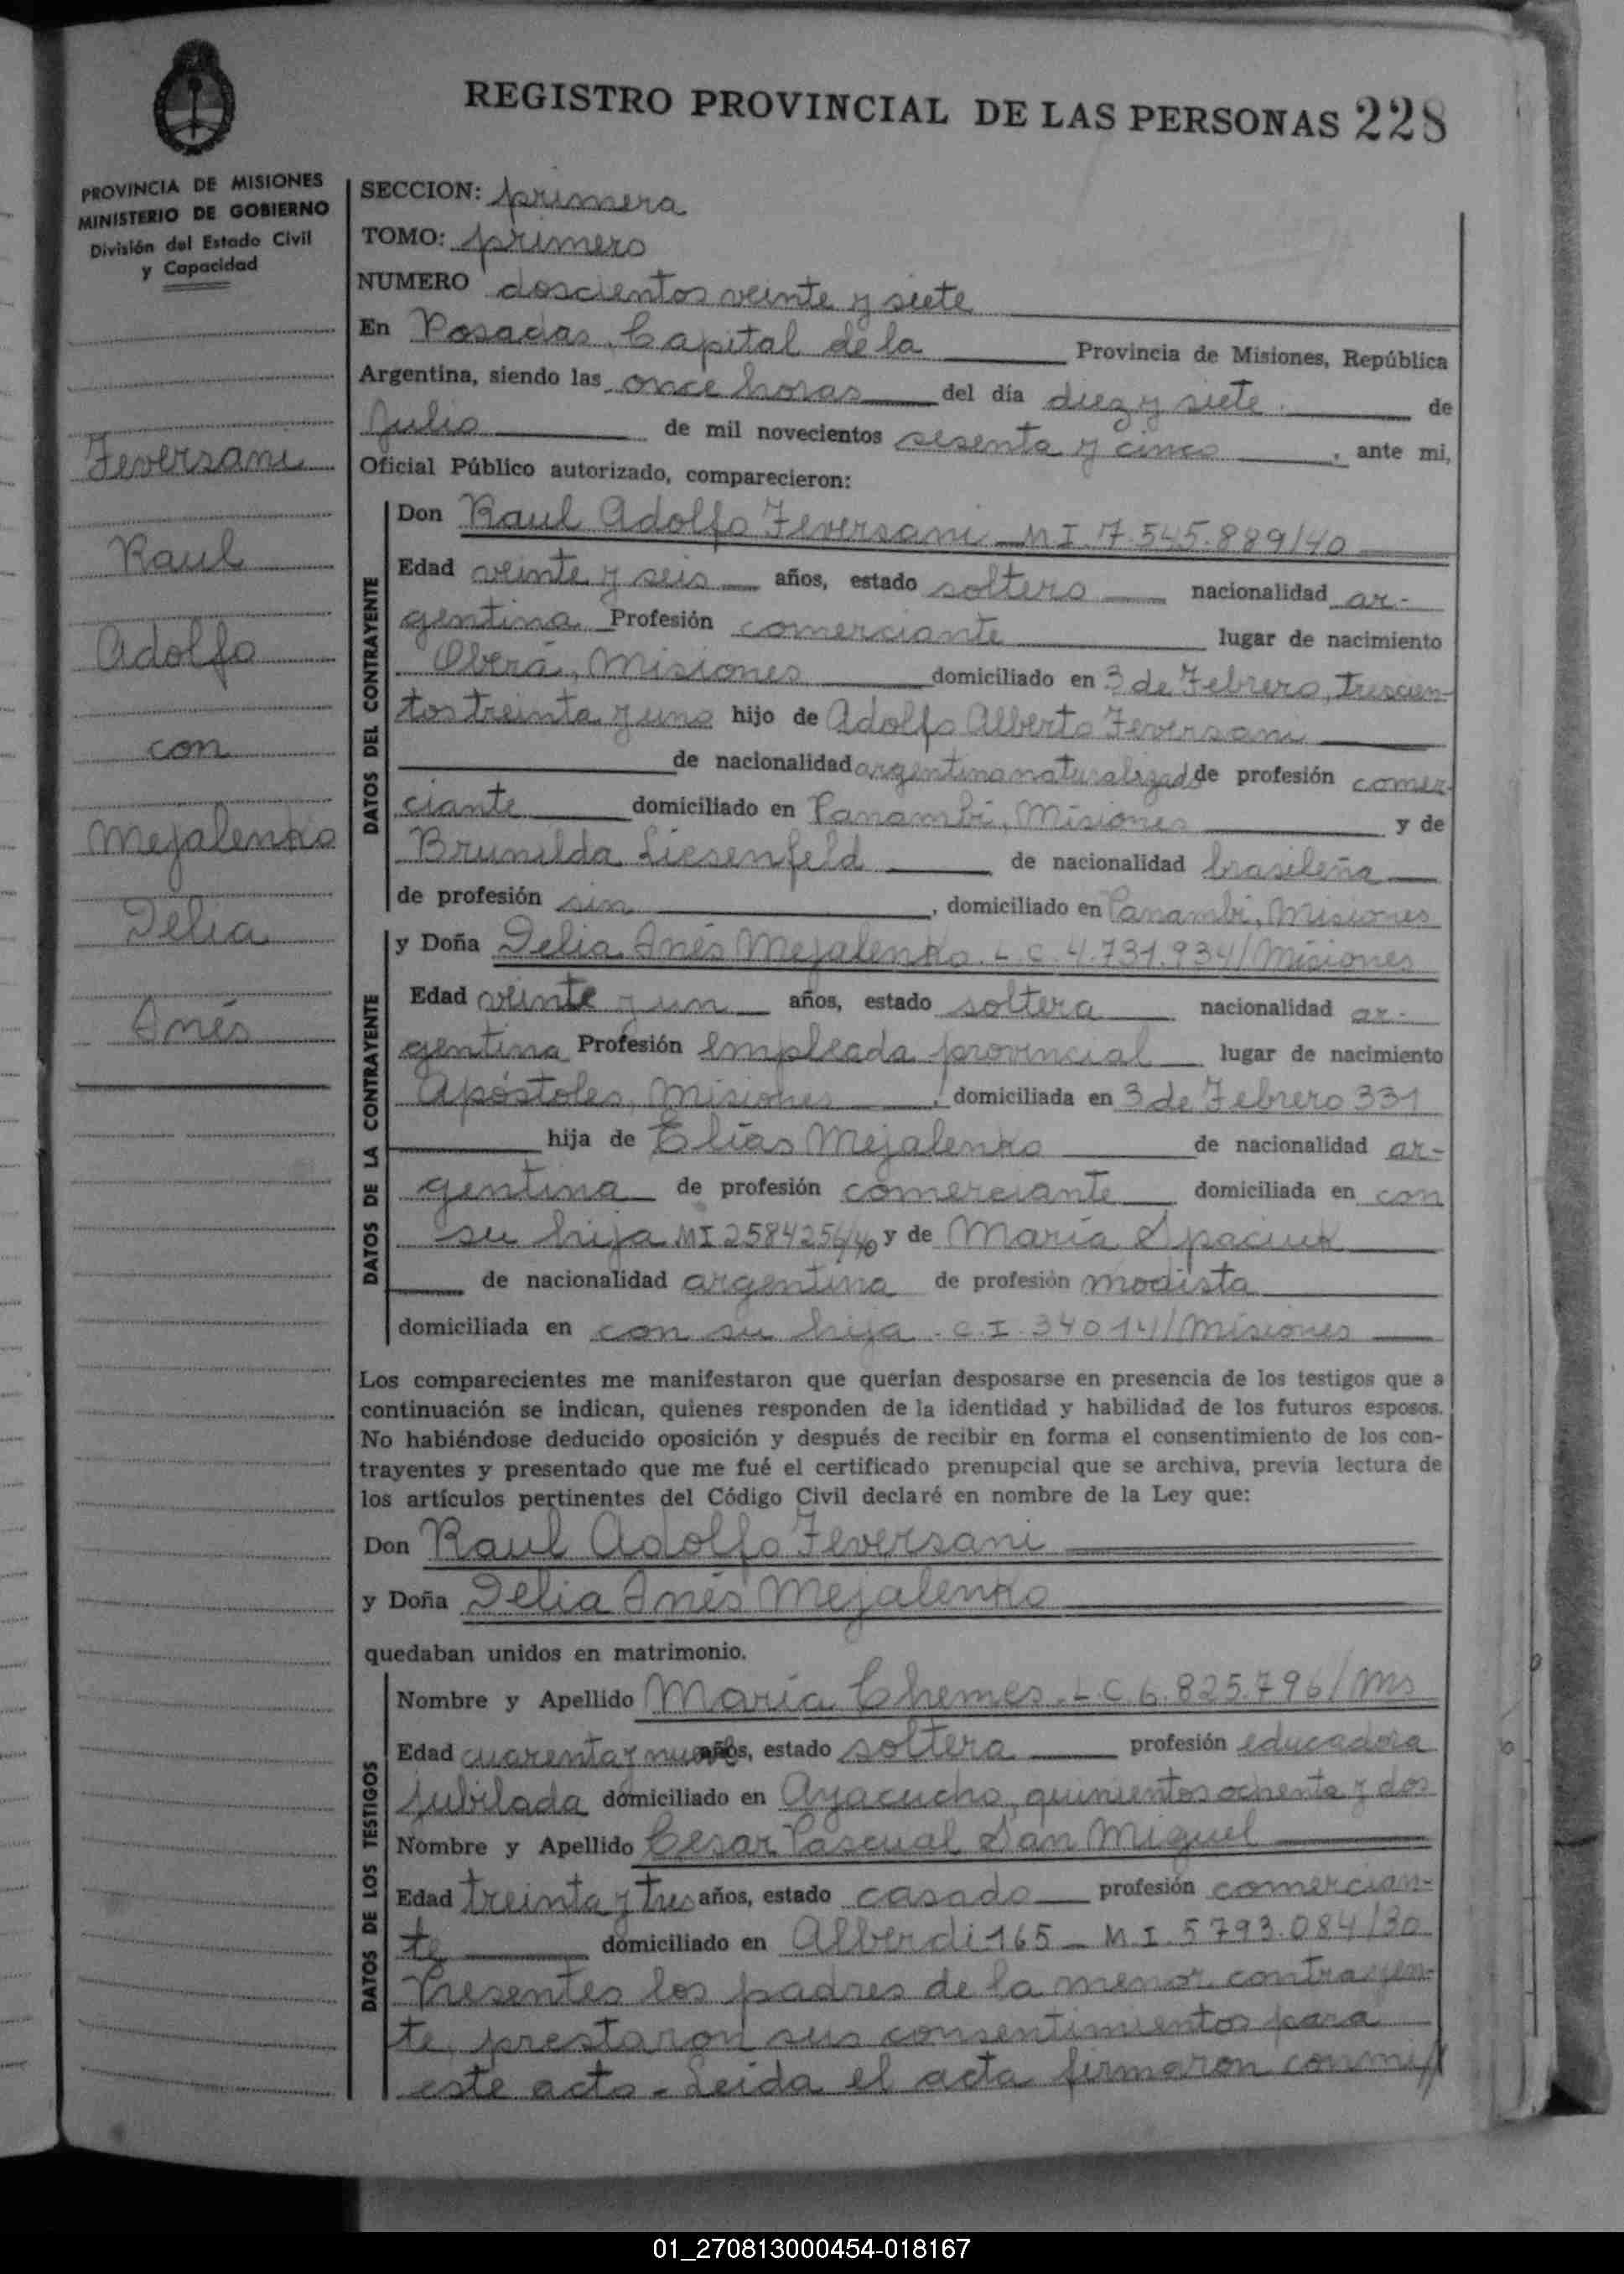 REGISTRO PROVINCIAL DE LAS PERSONAS 228
PROVINCIA DE MISIONES
MINISTERIO DE GOBIERNO
División del Estado Civil
y Capacidad
Feversani
Raul
Adolfo
con
Mejalenko
Delia
Inés
SECCION: primera
TOMO: primero
NUMERO doscientos veinte y siete
En Posadas, Capital de la Provincia de Misiones, República
Argentina, siendo las once horas del día diez y siete de
Julio de mil novecientos sesenta y cinco, ante mi,
Oficial Público autorizado, comparecieron:
DATOS DEL CONTRAYENTE
Don Raul Adolfo Feversani M I. 7.545.889/40
Edad veinte y seis años, estado soltero nacionalidad ar-
gentina Profesión comerciante lugar de nacimiento
Oberá, Misiones domiciliado en 3 de Febrero, trescien-
tos treinta y uno hijo de Adolfo Alberto Feversani
de nacionalidad argentina naturalizado de profesión comer-
ciante domiciliado en Panambí, Misiones y de
Brunilda Liesenfeld de nacionalidad brasileña
de profesión sin, domiciliado en Panambí, Misiones
DATOS DE LA CONTRAYENTE
y Doña Delia Inés Mejalenko. L. C. 4.731.934/Misiones
Edad veinte y un años, estado soltera nacionalidad ar-
gentina Profesión empleada provincial lugar de nacimiento
Apóstoles, Misiones, domiciliada en 3 de Febrero 331
hija de Elías Mejalenko de nacionalidad ar-
gentina de profesión comerciante domiciliada en con
su hija MI 2584256/40 y de María Spaciuk
de nacionalidad argentina de profesión modista
domiciliada en con su hija. C. I. 34014/Misiones
Los comparecientes me manifestaron que querían desposarse en presencia de los testigos que a
continuación se indican, quienes responden de la identidad y habilidad de los futuros esposos.
No habiéndose deducido oposición y después de recibir en forma el consentimiento de los con-
trayentes y presentado que me fué el certificado prenupcial que se archiva, previa lectura de
los artículos pertinentes del Código Civil declaré en nombre de la Ley que:
Don Raul Adolfo Feversani
y Doña Delia Inés Mejalenko
quedaban unidos en matrimonio.
DATOS DE LOS TESTIGOS
Nombre y Apellido María Chemes. L C. 6.825.796/Ms
Edad cuarenta y nueve años, estado soltera profesión educadora
jubilada domiciliado en Ayacucho, quinientos ochenta y dos
Nombre y Apellido Cesar Pascual San Miguel
Edad treinta y tres años, estado casado profesión comercian-
te domiciliado en Alberdi 165 - M. I. 5793.084/30
Presentes los padres de la menor contrayen-
te, prestaron sus consentimientos para
este acto. Leida el acta firmaron conmi//
01_270813000454-018167